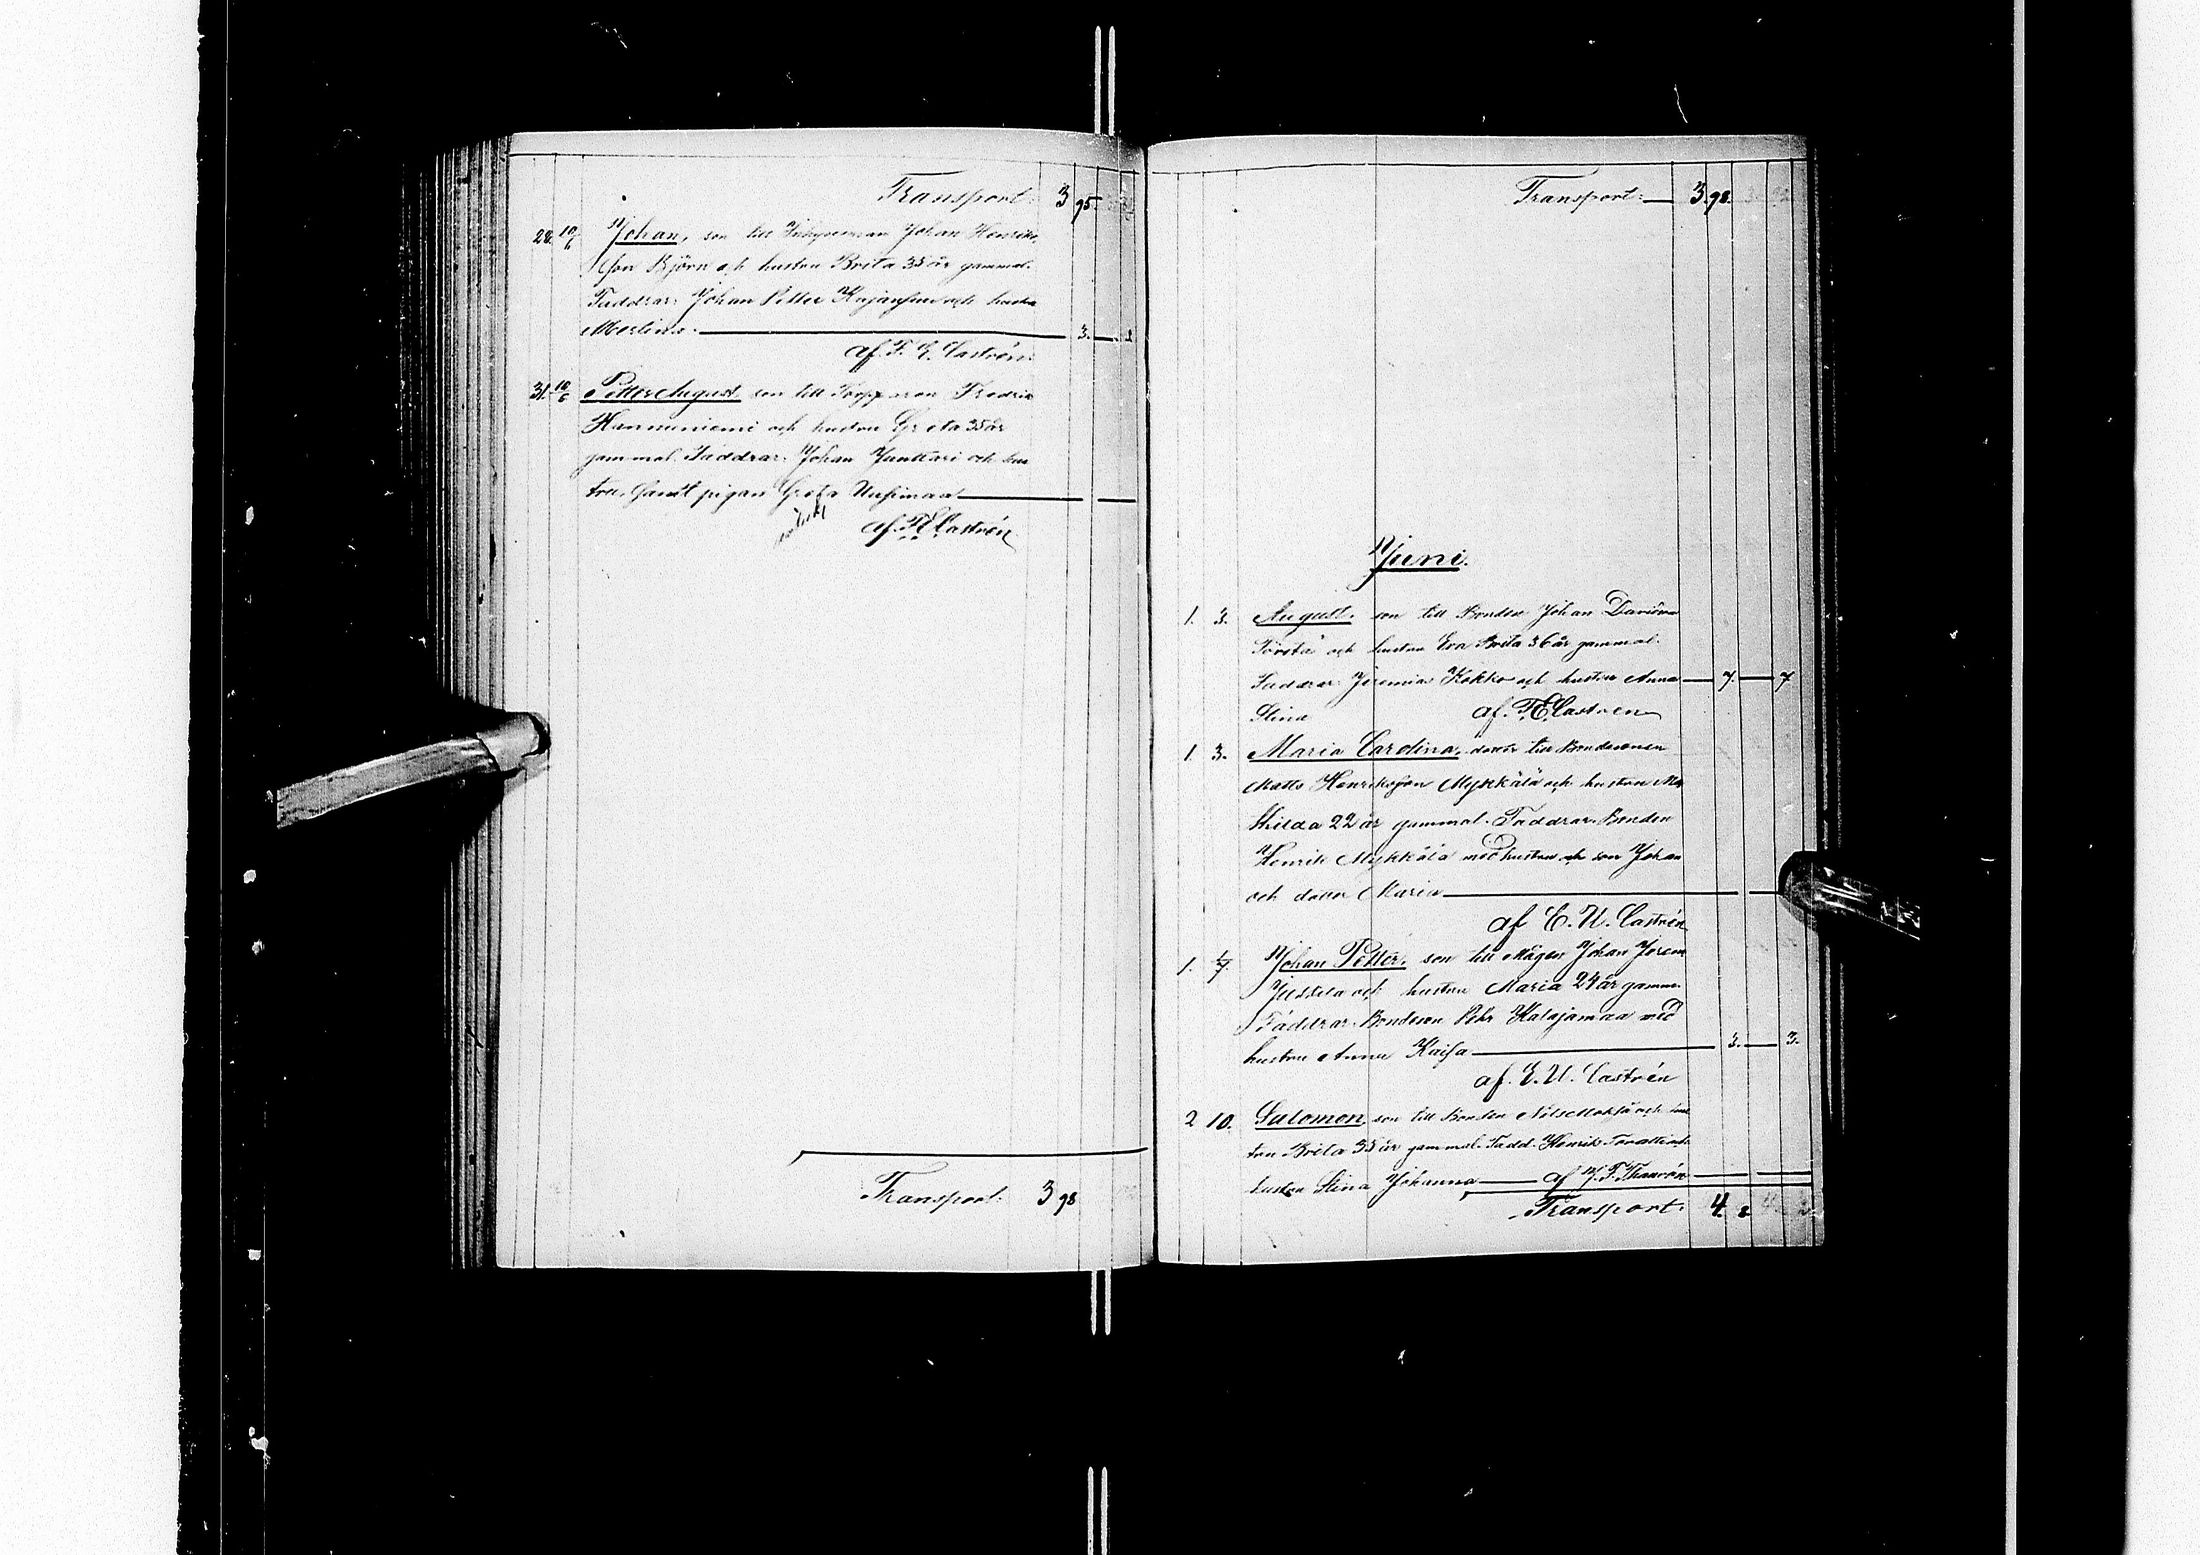 Transport: 3 95.
28. 10/6 Johan, son till Inhysesman Johan Henriks
son Björn och hustru Brita 35 år gammal.
Faddrar: Johan Petter Kujansuu och hustru
3.
af. F. E. Castrén.
31. 10/6 Petter August son till Torpparen Fredrik
Hannuniemi och hustru Greta 35 år
gammal. Faddrar. Johan Junttari och hus
tru. Samt pigan Greta Uusimaa
af. F. E. Castrén
Transport: 3 98
Transport: 3. 98.
Juni.
1. 3. August. son till Bonden Johan
och hustru Eva Brita 36 år gammal.
Faddrar Jeremias Kokko och hustru Anna 7. 7
Stina af. F. E. Castren
1. 3. Maria Carolina, dotter till Bondesonen
Matts Henriksson Mykkälä och hustru Ma
thilda 22 år gammal. Faddrar. Bonden
Henrik Mykkälä med hustru och son Johan
och dotter Maria
af E. U. Castrén
1. Johan Petter. son till Mågen Johan Jerem
Jussila och hustru Maria 24 år gamm.
Faddrar. Bondeson Pehr Kalajamaa med
hustru Anna Kaisa 3. 3.
af. E. U. Castrén
2 10. Salomon, son till Bonden Nils och hus
tru Brita 35 år gammal. Fadd. Henrik
hustru Stina Johanna af
Transport: 4. 2